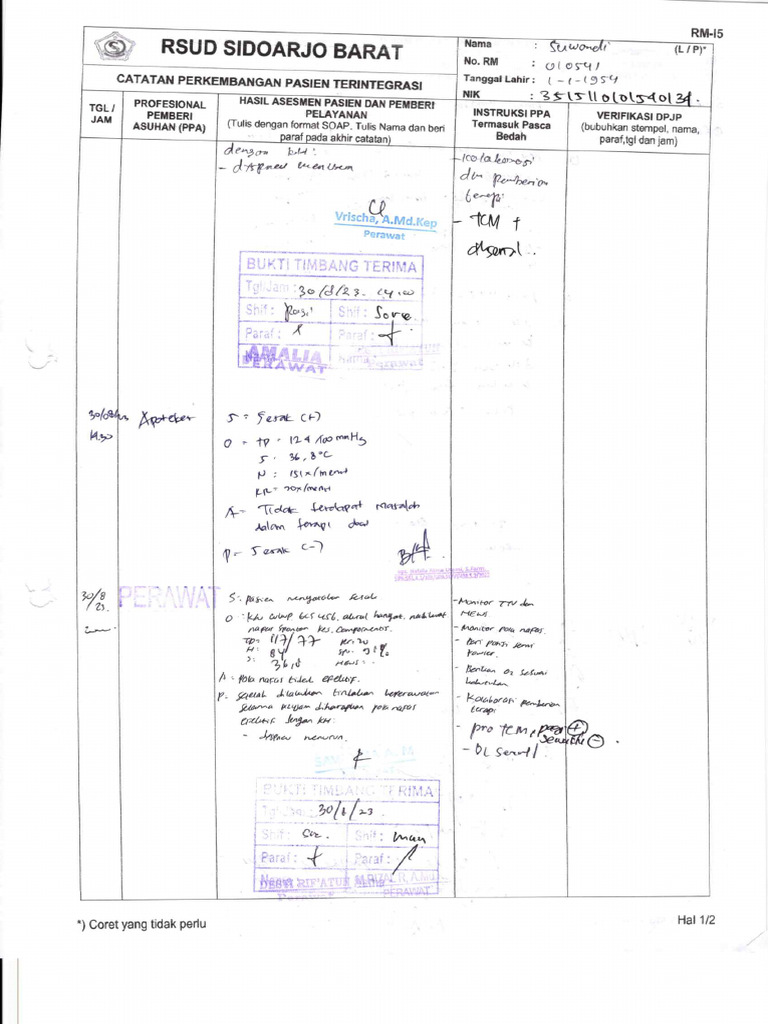 RM-i5
RSUD SIDOARJO BARAT
Nama : Suwondi (L / P)*
No. RM : 010541
Tanggal Lahir : 1-1-1954
NIK :
CATATAN PERKEMBANGAN PASIEN TERINTEGRASI
TGL / JAM
PROFESIONAL PEMBERI ASUHAN (PPA)
HASIL ASESMEN PASIEN DAN PEMBERI PELAYANAN
(Tulis dengan format SOAP. Tulis Nama dan beri paraf pada akhir catatan)
INSTRUKSI PPA
Termasuk Pasca Bedah
VERIFIKASI DPJP
(bubuhkan stempel, nama, paraf,tgl dan jam)
dengan KH:
- dispnea menurun
- kolaborasi
dlm pemberian
terapi
- TCM +
Vrischa, A.Md.Kep
Perawat
BUKTI TIMBANG TERIMA
Tgl/Jam : 30/8/23. 14.00
Shif : Pagi Shif : Sore
Paraf : Paraf :
AMALIA Nama
PERAWAT Perawat
30/08/23
14.30
Apoteker
S = Sesak (+)
O = TD = 124/100 mmHg
S : 36,8°C
N : 151x/menit
RR = 20x/menit
A = Tidak terdapat masalah
dalam terapi obat
P = Sesak (-)
30/8
23.
PERAWAT
S : pasien mengatakan sesak
O : KU cukup GCS 456, akral hangat,
napas spontan kes. Composmentis.
TD : 117/77 RR : 20
N : 84
S : 36,8 MEWS :
A : Pola nafas tidak efektif.
P : setelah dilakukan tindakan keperawatan
selama diharapkan pola nafas
efektif dengan KH:
- dispnea menurun.
- Monitor TTV dan
MEWS
- Monitor pola napas.
- Beri posisi semi
fowler.
- Berikan O2 sesuai
kebutuhan
- Kolaborasi pemberian
terapi
- pro TCM, pagi +
sewaktu -
- DL
BUKTI TIMBANG TERIMA
Tgl/Jam : 30/8/23
Shif : Sore Shif : malam
Paraf : Paraf :
DESTI RIF'ATUR
Perawat PERAWAT
*) Coret yang tidak perlu
Hal 1/2